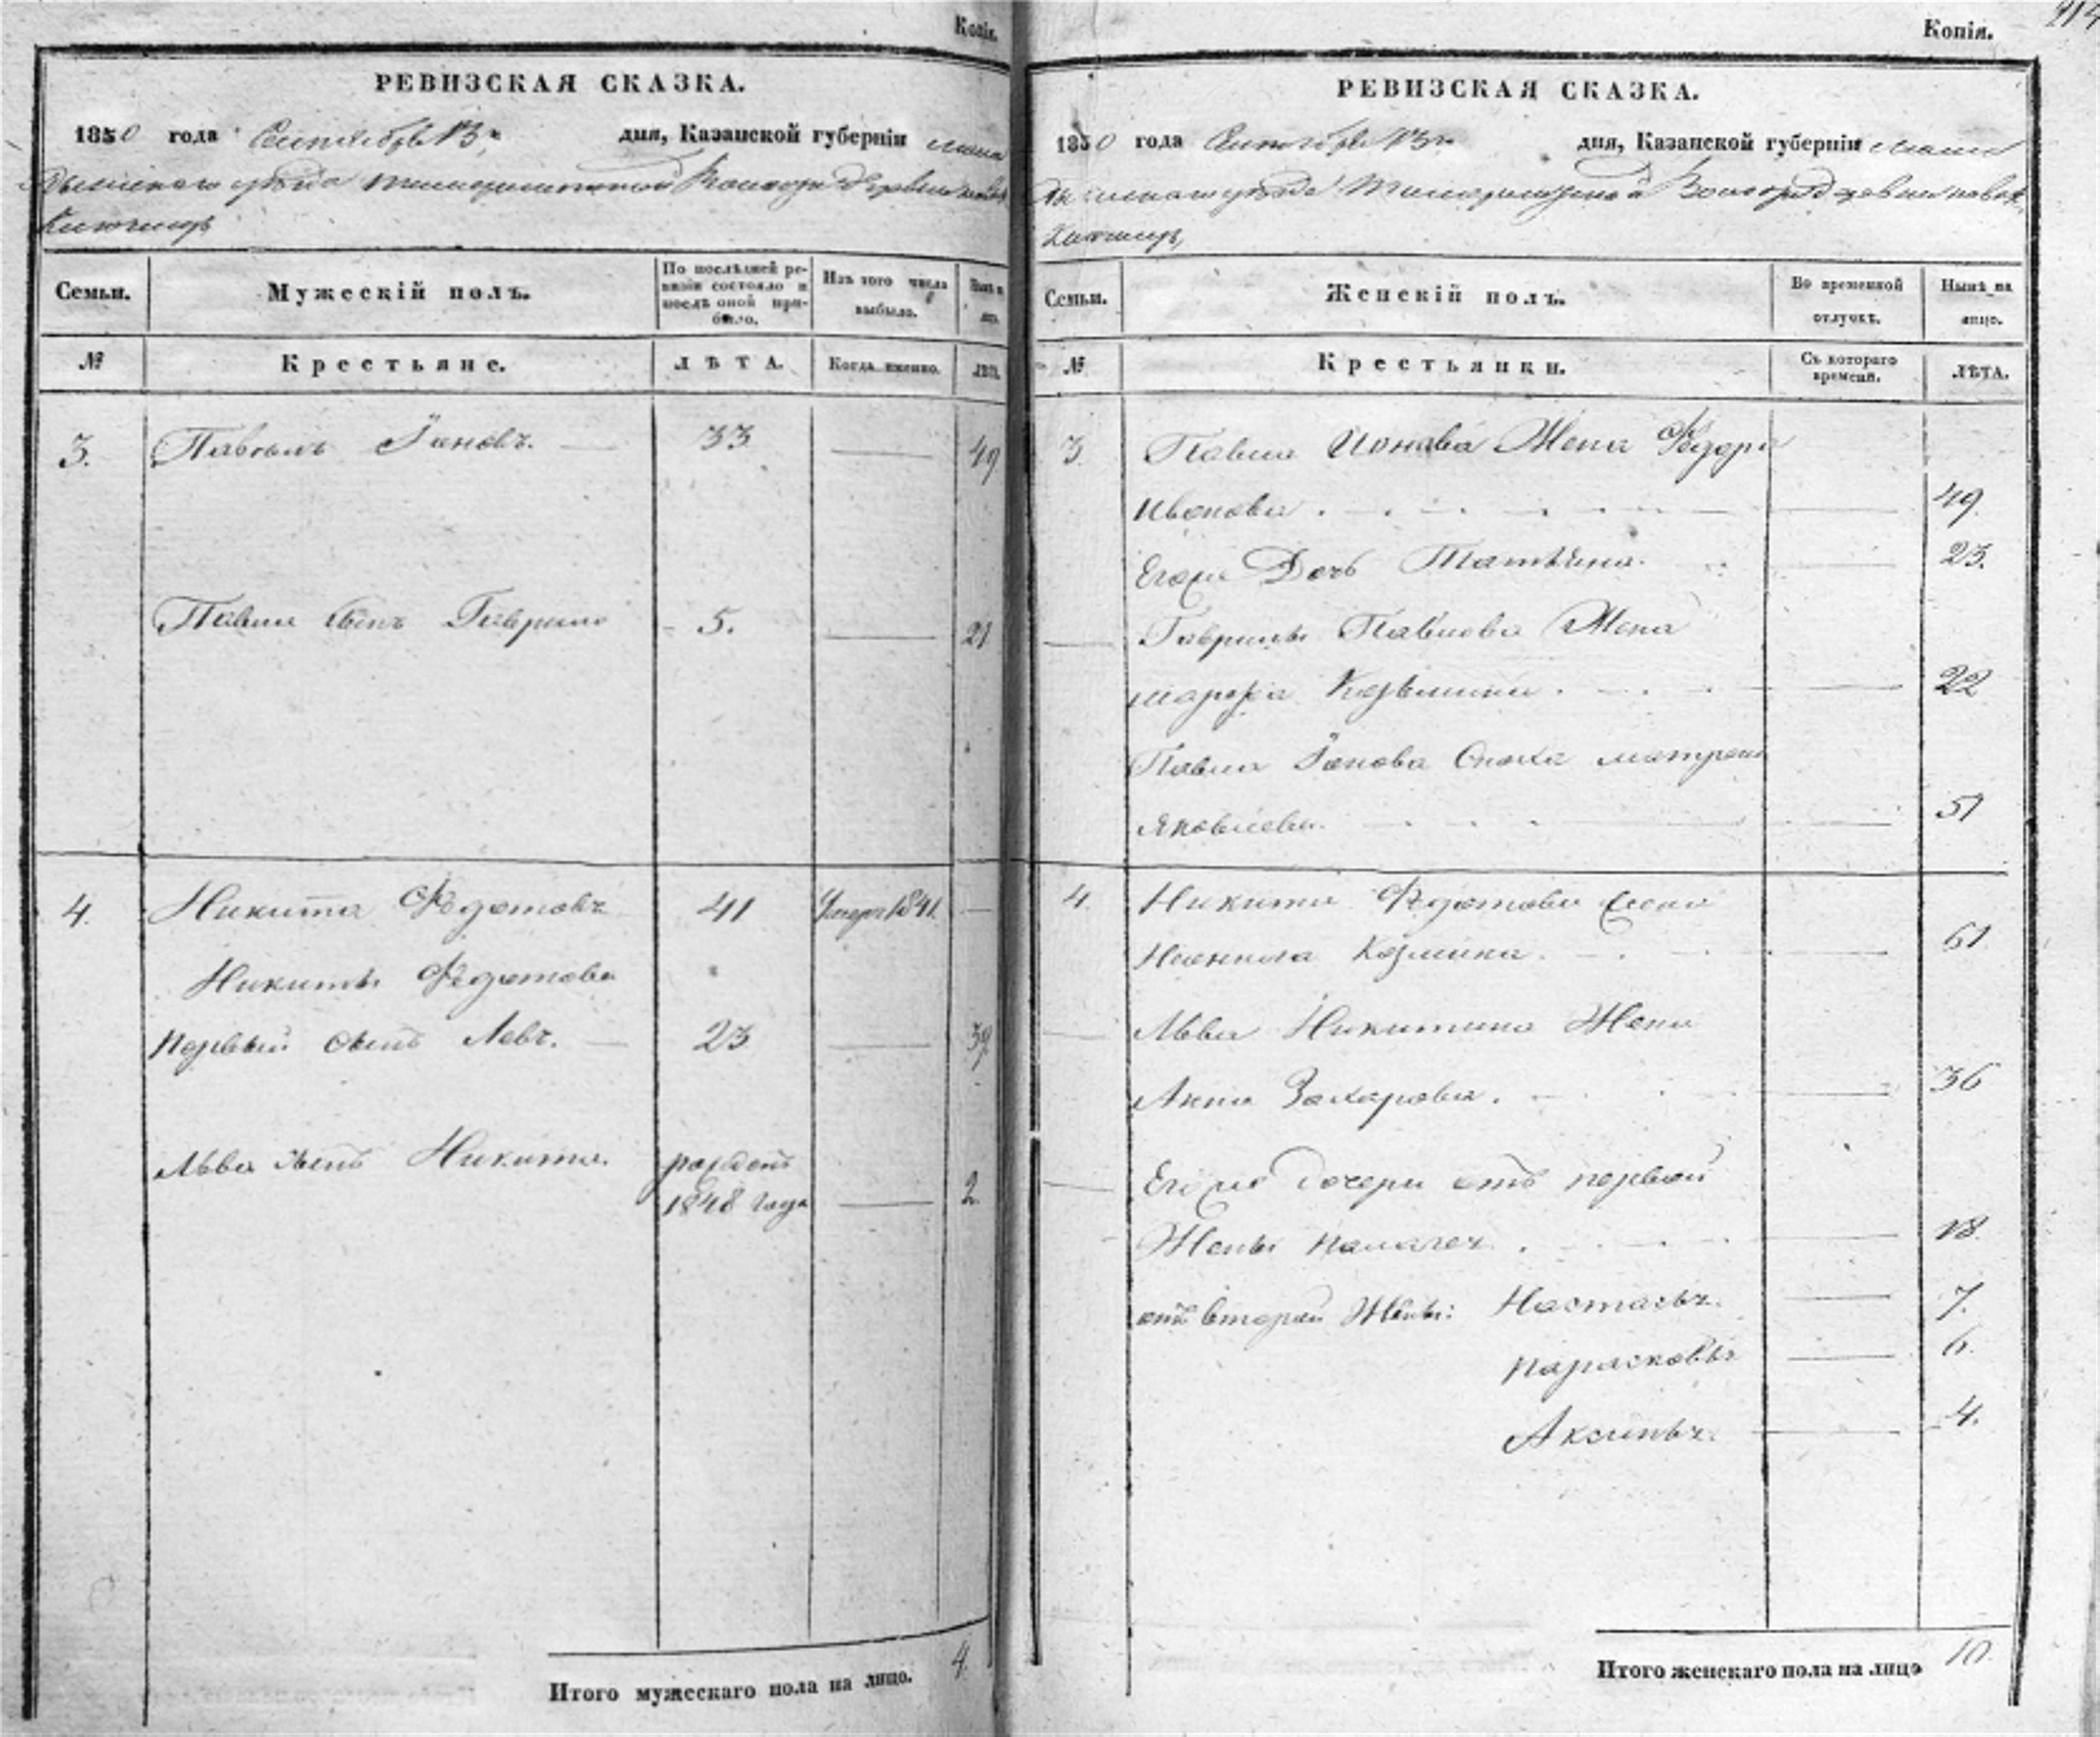 Копія.
РЕВИЗСКАЯ СКАЗКА.
1850 года Сентября 13 дня, Казанской губерніи мама
дышскаго уѣзда Волости деревни
Семьи.
Мужескій полъ.
По послѣдней ре-
визіи состояло и
послѣ оной при-
было.
Изъ того числа
выбыло.
№
Крестьяне.
ЛѢТА.
Когда именно.
ЛѢТА.
3. Павелъ Іоновъ. 33 49
Павла сынъ Гаврило 5. 21
4. Никита Федотовъ 41 Умеръ 1841.
Никиты Федотова
первый сынъ Левъ. 23 39
Льва сынъ Никита. рожденъ
1848 года 2.
Итого мужескаго пола на лицо. 4.
Копія.
РЕВИЗСКАЯ СКАЗКА.
1850 года Сентября 13 дня, Казанской губерніи мама
дышскаго уѣзда Волости деревни
Семьи.
Женскій полъ.
Во временной
отлучкѣ.
Нынѣ на
лицо.
№
Крестьянки.
Съ котораго
времени.
ЛѢТА.
3. Павла Іонова Жена Федора
Иванова 49.
Его же Дочь Татьяна. 23.
Гаврилы Павлова Жена
марфа Козьмина. 22
Павла Іонова Сноха матрена
Яковлева. 51
4. Никиты Федотова
Козмина. 61
Льва Никитина Жена
Анна Захарова. 36
Его же дочери отъ первой
Жены Палагея. 18.
отъ второй Жены: Настасья. 7.
Парасковья 6.
Аксинья. 4.
Итого женскаго пола на лицо 10.